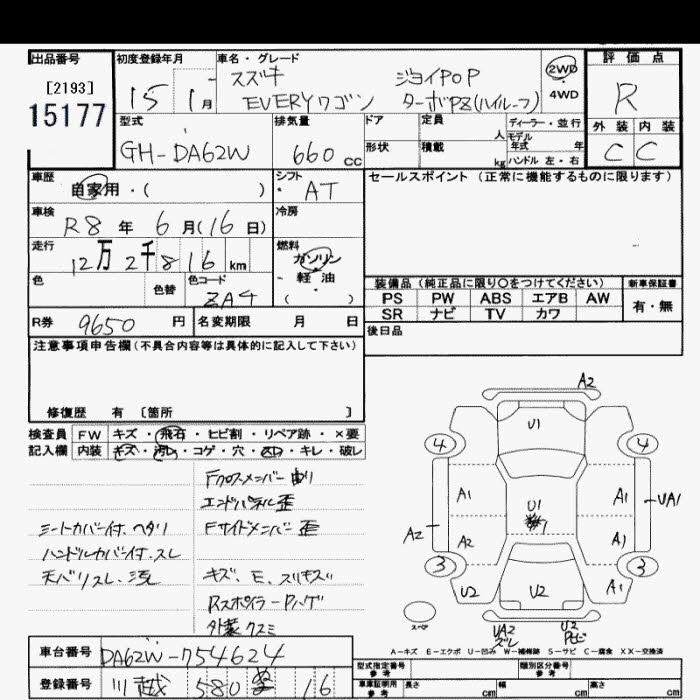 出品番号
[2193]
15177
初度登録年月
15 1月
車名・グレード
スズキ ジョイPOP
EVERYワゴン ターボPZ(ハイルーフ)
2WD
4WD
評価点
R
外装 内装
C C
型式
GH-DA62W
排気量
660 cc
ドア 定員 人
形状 積載 kg
ディーラー・並行
モデル年式 年
ハンドル 左・右
車歴
自家用・( )
シフト
・AT
セールスポイント (正常に機能するものに限ります)
車検
R8年 6月(16日)
冷房
走行
12万2千816km
燃料
ガソリン
・軽油
( )
色
色替
色コード
ZA4
装備品(純正品に限り○をつけてください)
新車保証書
PS PW ABS エアB AW
SR ナビ TV カワ
有・無
R券 9650円
名変期限 月 日
後日品
注意事項申告欄(不具合内容等は具体的に記入して下さい)
修復歴 有 [箇所 ]
検査員 FW キズ・飛石・ヒビ割・リペア跡・×要
記入欄 内装 キズ・汚れ・コゲ・穴・スレ・キレ・破レ
Fクロスメンバー曲り
エンドパネル歪
シートカバー付、ヘタリ Fサイドメンバー歪
ハンドルカバー付、スレ
天バリスレ、汚れ キズ、E、スリキズ
Rスポイラー-Pハゲ
外装クスミ
A2
U1
4 4
A1 U1 A1 UA1
A2 A2 A1
3 3
U2 U2 A1
スペア
UA2 ズレ U2 Pヒビ
A-キズ E-エクボ U-凹み W-補修跡 S-サビ C-腐食 XX-交換済
車台番号 DA62W-754624
登録番号 川越 580 16
型式指定番号 参考
類別区分番号 参考
車庫証明用 参考
長さ cm 幅 cm 高さ cm